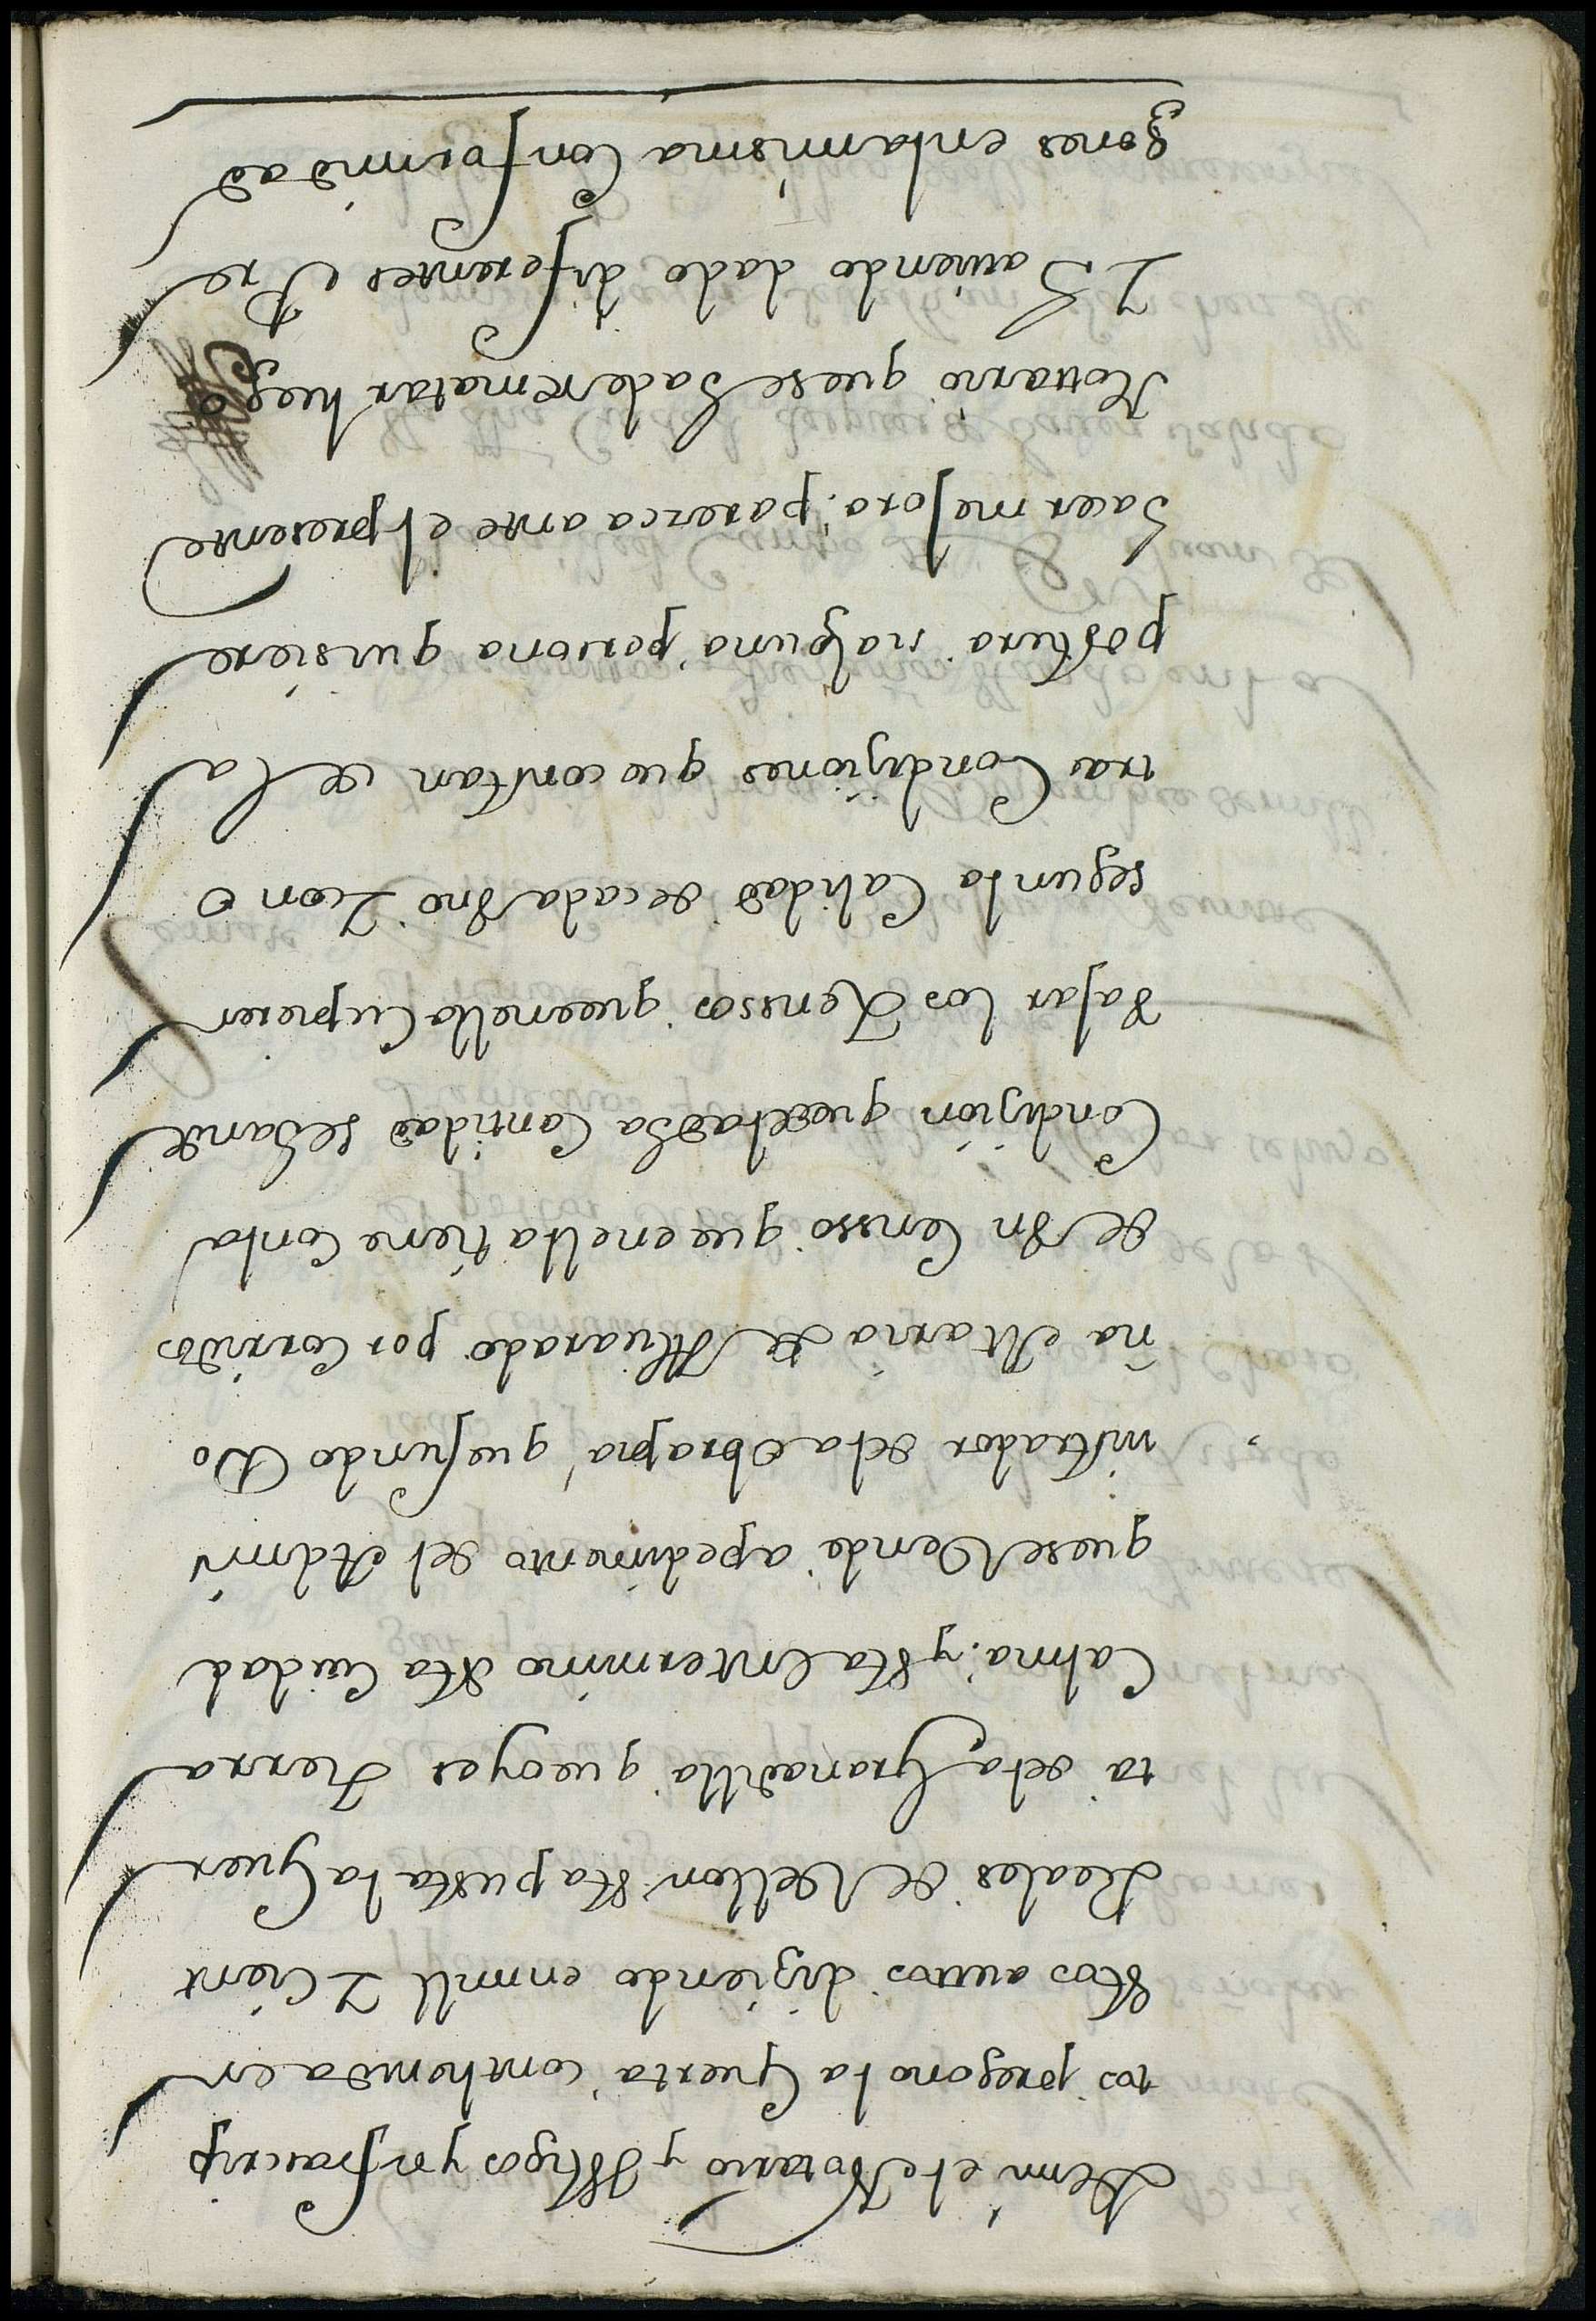 de mi el Notario y Ttigos ynfraescrip
tos pregono la Guerta conthenida en
Estos autos diziendo en mill Y Cient
Reales de Vellon sta puesta la Guer
ta de la Granadilla que oy es Tierra
Calma y sta en termino dsta Ciudad
que se Vende a pedimento del Admi
nistrador de la obra pia que fundo Do
ña Maria de Alvarado por Corridos
de Vn Censso que en ella tiene Con la
Condizion que de la dha Cantidad se han de
Bajar los Zenssos que en ello Cupieren
segun la Calidad de cada Vno Y con o
tras Condiziones que constan de la
postura si alguna persona quisiere
hacer mejora parezca ante el presente
Nottario que se ha de rematar luego
Y haviendo dado diferentes Pre
gones en la misma Conformidad